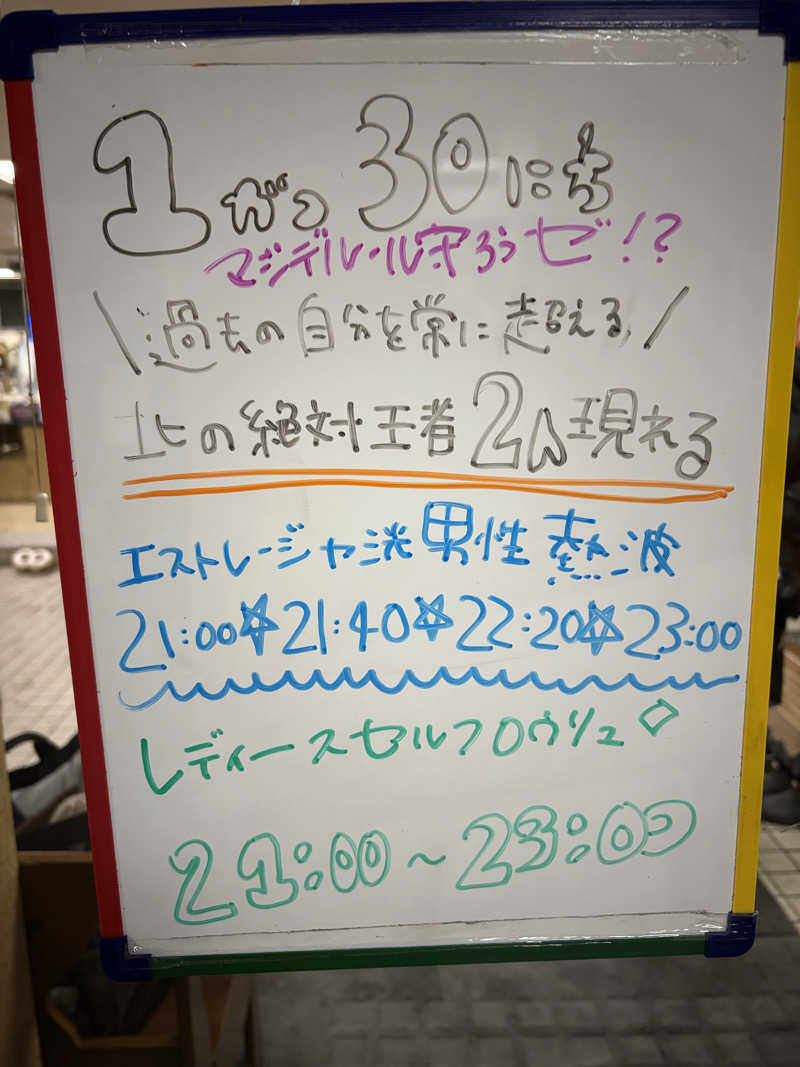 1がつ30にち
マジデルール守ろうゼ!?
\過去の自分を常に超える/
北の絶対王者2人現れる
エストレージャ洸男性熱波
21:00☆21:40☆22:20☆23:00
レディースセルフロウリュ◇
21:00~23:00